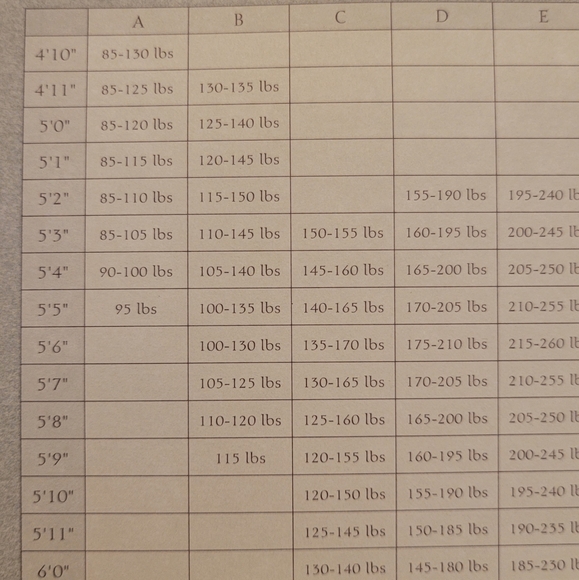 A B C D E
4'10" 85-130 lbs
4'11" 85-125 lbs 130-135 lbs
5'0" 85-120 lbs 125-140 lbs
5'1" 85-115 lbs 120-145 lbs
5'2" 85-110 lbs 115-150 lbs 155-190 lbs 195-240 lb
5'3" 85-105 lbs 110-145 lbs 150-155 lbs 160-195 lbs 200-245 lb
5'4" 90-100 lbs 105-140 lbs 145-160 lbs 165-200 lbs 205-250 lb
5'5" 95 lbs 100-135 lbs 140-165 lbs 170-205 lbs 210-255 lb
5'6" 100-130 lbs 135-170 lbs 175-210 lbs 215-260 lb
5'7" 105-125 lbs 130-165 lbs 170-205 lbs 210-255 lb
5'8" 110-120 lbs 125-160 lbs 165-200 lbs 205-250 lb
5'9" 115 lbs 120-155 lbs 160-195 lbs 200-245 lb
5'10" 120-150 lbs 155-190 lbs 195-240 lb
5'11" 125-145 lbs 150-185 lbs 190-235 lb
6'0" 130-140 lbs 145-180 lbs 185-230 lb